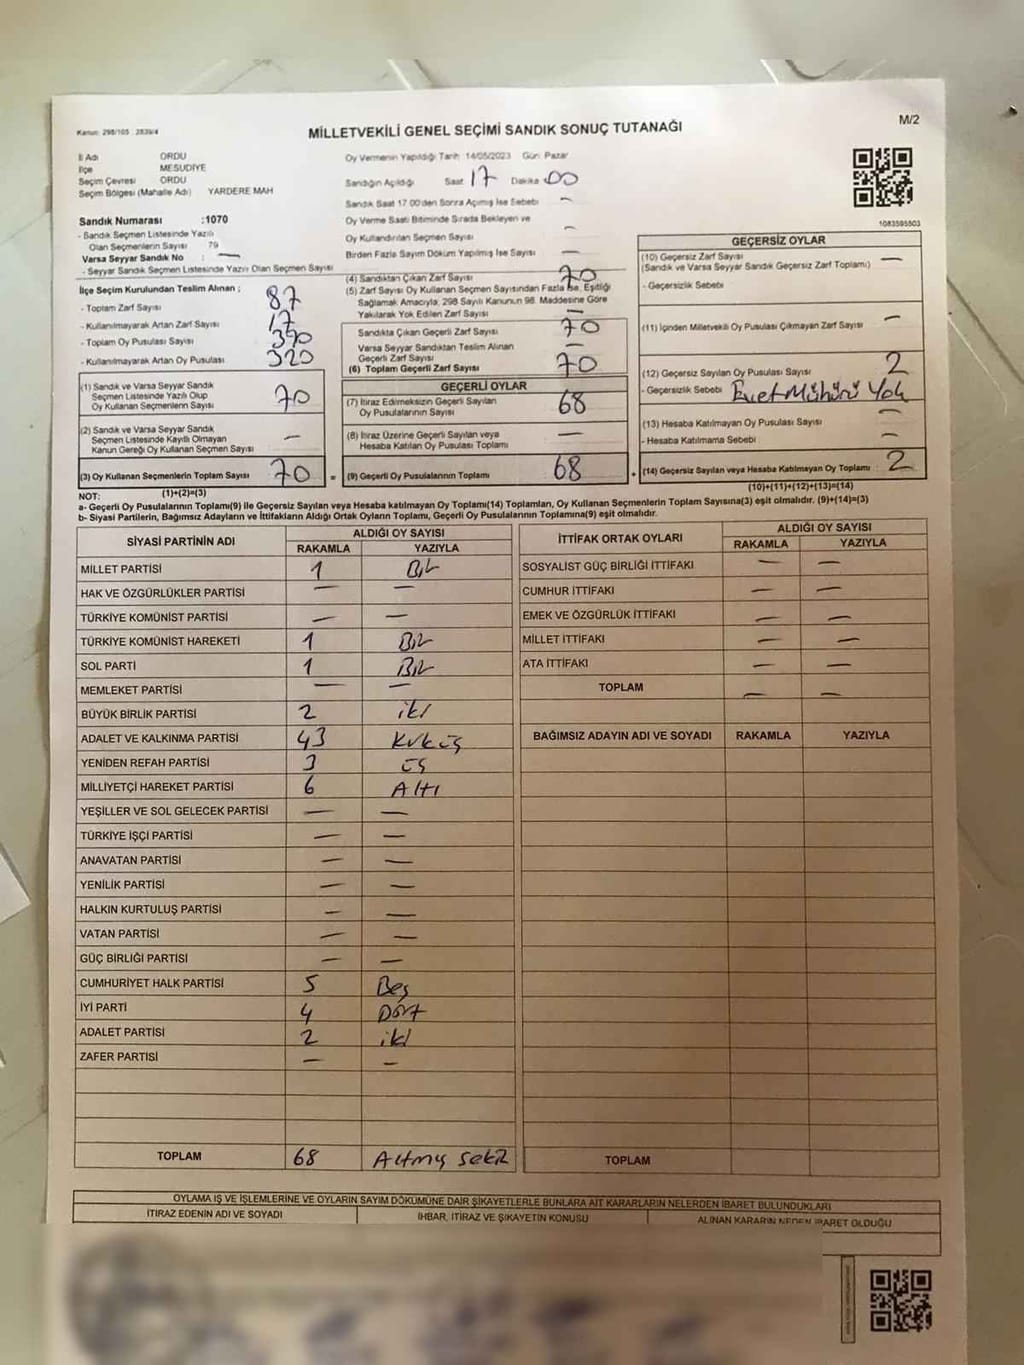 Kanun: 298/105 . 2839/4
MİLLETVEKİLİ GENEL SEÇİMİ SANDIK SONUÇ TUTANAĞI
M/2
İl Adı ORDU
İlçe MESUDİYE
Seçim Çevresi ORDU
Seçim Bölgesi (Mahalle Adı) YARDERE MAH
Sandık Numarası :1070
- Sandık Seçmen Listesinde Yazılı
Olan Seçmenlerin Sayısı 79
Varsa Seyyar Sandık No : —
- Seyyar Sandık Seçmen Listesinde Yazılı Olan Seçmen Sayısı
İlçe Seçim Kurulundan Teslim Alınan ;
- Toplam Zarf Sayısı 87
- Kullanılmayarak Artan Zarf Sayısı 17
- Toplam Oy Pusulası Sayısı 390
- Kullanılmayarak Artan Oy Pusulası 320
(1) Sandık ve Varsa Seyyar Sandık
Seçmen Listesinde Yazılı Olup
Oy Kullanan Seçmenlerin Sayısı 70
(2) Sandık ve Varsa Seyyar Sandık
Seçmen Listesinde Kayıtlı Olmayan
Kanun Gereği Oy Kullanan Seçmen Sayısı —
(3) Oy Kullanan Seçmenlerin Toplam Sayısı 70 =
(1)+(2)=(3)
Oy Vermenin Yapıldığı Tarih 14/05/2023 Gün: Pazar
Sandığın Açıldığı Saat 17 Dakika 00
Sandık Saat 17.00'den Sonra Açılmış İse Sebebi —
Oy Verme Saati Bitiminde Sırada Bekleyen ve
Oy Kullandırılan Seçmen Sayısı —
Birden Fazla Sayım Döküm Yapılmış İse Sayısı —
(4) Sandıktan Çıkan Zarf Sayısı 70
(5) Zarf Sayısı Oy Kullanan Seçmen Sayısından Fazla İse, Eşitliği
Sağlamak Amacıyla; 298 Sayılı Kanunun 98. Maddesine Göre
Yakılarak Yok Edilen Zarf Sayısı —
Sandıkta Çıkan Geçerli Zarf Sayısı 70
Varsa Seyyar Sandıktan Teslim Alınan
Geçerli Zarf Sayısı —
(6) Toplam Geçerli Zarf Sayısı 70
GEÇERLİ OYLAR
(7) İtiraz Edilmeksizin Geçerli Sayılan
Oy Pusulalarının Sayısı 68
(8) İtiraz Üzerine Geçerli Sayılan veya
Hesaba Katılan Oy Pusulaları Toplamı —
(9) Geçerli Oy Pusulalarının Toplamı 68 +
1083595503
GEÇERSİZ OYLAR
(10) Geçersiz Zarf Sayısı
(Sandık ve Varsa Seyyar Sandık Geçersiz Zarf Toplamı) —
- Geçersizlik Sebebi
(11) İçinden Milletvekili Oy Pusulası Çıkmayan Zarf Sayısı —
(12) Geçersiz Sayılan Oy Pusulası Sayısı 2
- Geçersizlik Sebebi Evet Mührü Yok
(13) Hesaba Katılmayan Oy Pusulası Sayısı —
- Hesaba Katılmama Sebebi —
(14) Geçersiz Sayılan veya Hesaba Katılmayan Oy Toplamı : 2
(10)+(11)+(12)+(13)=(14)
NOT:
a- Geçerli Oy Pusulalarının Toplamı(9) ile Geçersiz Sayılan veya Hesaba katılmayan Oy Toplamı(14) Toplamları, Oy Kullanan Seçmenlerin Toplam Sayısına(3) eşit olmalıdır. (9)+(14)=(3)
b- Siyasi Partilerin, Bağımsız Adayların ve İttifakların Aldığı Ortak Oyların Toplamı, Geçerli Oy Pusulalarının Toplamına(9) eşit olmalıdır.
SİYASİ PARTİNİN ADI ALDIĞI OY SAYISI
RAKAMLA YAZIYLA
MİLLET PARTİSİ 1 Bir
HAK VE ÖZGÜRLÜKLER PARTİSİ — —
TÜRKİYE KOMÜNİST PARTİSİ — —
TÜRKİYE KOMÜNİST HAREKETİ 1 Bir
SOL PARTİ 1 Bir
MEMLEKET PARTİSİ — —
BÜYÜK BİRLİK PARTİSİ 2 iki
ADALET VE KALKINMA PARTİSİ 43 Kırküç
YENİDEN REFAH PARTİSİ 3 üç
MİLLİYETÇİ HAREKET PARTİSİ 6 Altı
YEŞİLLER VE SOL GELECEK PARTİSİ — —
TÜRKİYE İŞÇİ PARTİSİ — —
ANAVATAN PARTİSİ — —
YENİLİK PARTİSİ — —
HALKIN KURTULUŞ PARTİSİ — —
VATAN PARTİSİ — —
GÜÇ BİRLİĞİ PARTİSİ — —
CUMHURİYET HALK PARTİSİ 5 Beş
İYİ PARTİ 4 Dört
ADALET PARTİSİ 2 iki
ZAFER PARTİSİ — —
TOPLAM 68 Altmış sekiz
İTTİFAK ORTAK OYLARI ALDIĞI OY SAYISI
RAKAMLA YAZIYLA
SOSYALİST GÜÇ BİRLİĞİ İTTİFAKI — —
CUMHUR İTTİFAKI — —
EMEK VE ÖZGÜRLÜK İTTİFAKI — —
MİLLET İTTİFAKI — —
ATA İTTİFAKI — —
TOPLAM — —
BAĞIMSIZ ADAYIN ADI VE SOYADI RAKAMLA YAZIYLA
TOPLAM
OYLAMA İŞ VE İŞLEMLERİNE VE OYLARIN SAYIM DÖKÜMÜNE DAİR ŞİKAYETLERLE BUNLARA AİT KARARLARIN NELERDEN İBARET BULUNDUKLARI
İTİRAZ EDENİN ADI VE SOYADI İHBAR, İTİRAZ VE ŞİKAYETİN KONUSU ALINAN KARARIN NEDEN İBARET OLDUĞU